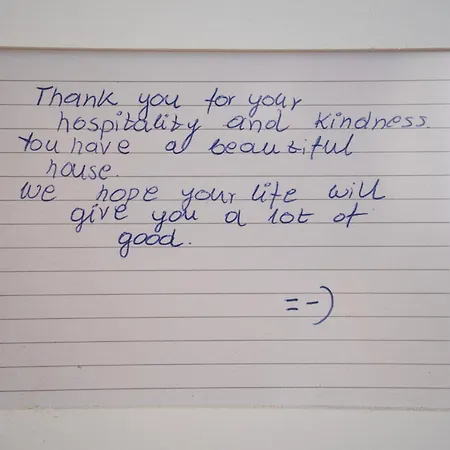 Thank you for your
hospitality and kindness.
You have a beautiful
house.
We hope your life will
give you a lot of
good.
=-)